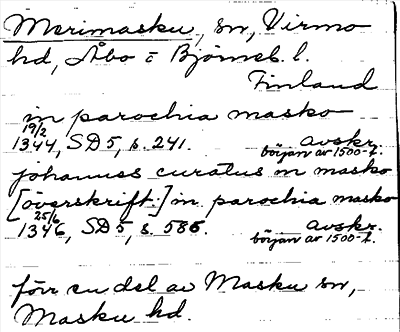 Merimasku, sn, Virmo
hd, Åbo o Björneb. l.
Finland
in parochia masko
19/2
1344, SD 5, s. 241. avskr.
början av 1500-t.
johannes curatus in masko
[överskrift:] in parochia masko
25/6
1346, SD 5, s. 585. avskr.
början av 1500-t.
förr en del av Masku sn,
Masku hd.